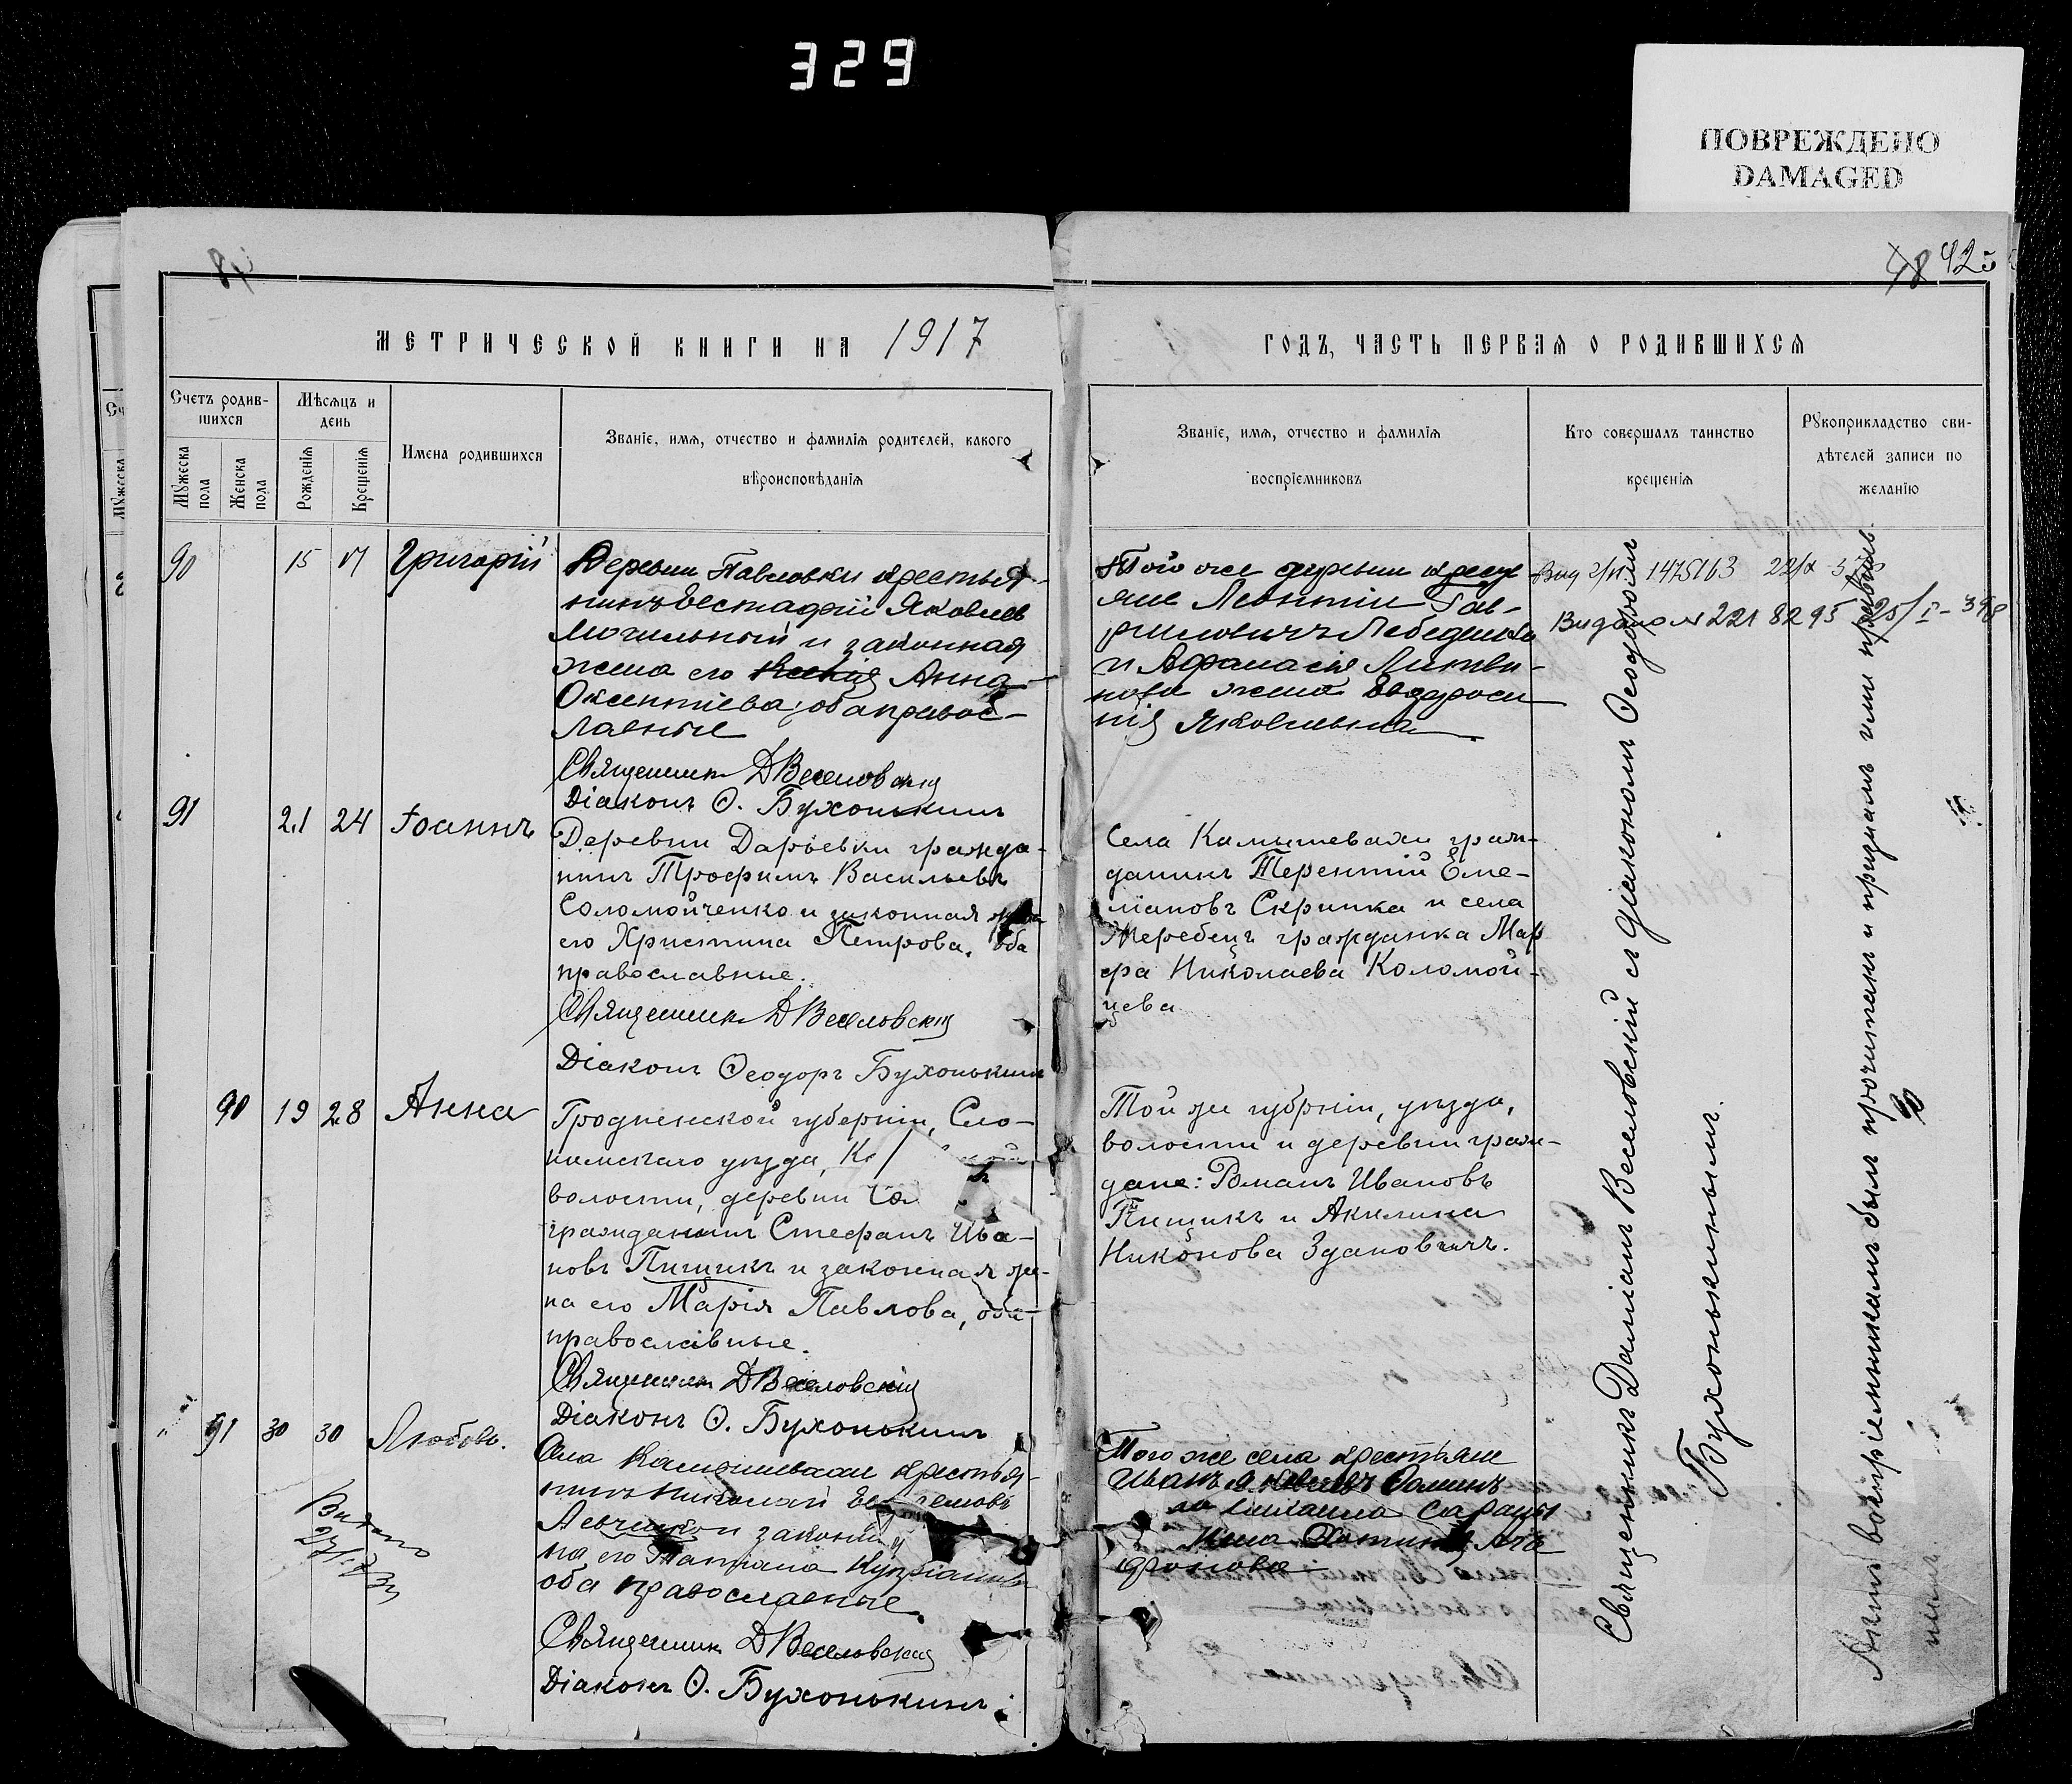 329
ПОВРЕЖДЕНО
DAMAGED
425
МЕТРИЧЕСКОЙ КНИГИ НА 1917
ГОДЪ, ЧАСТЬ ПЕРВАЯ О РОДИВШИХСЯ
Счетъ родив-
шихся
Мужеска пола
Женска пола
Мѣсяцъ и
день
Рожденія
Крещенія
Имена родившихся
Званіе, имя, отчество и фамилія родителей, какого
вѣроисповѣданія
Званіе, имя, отчество и фамилія
воспріемниковъ
Кто совершалъ таинство
крещенія
Рукоприкладство сви-
дѣтелей записи по
желанію
90 15 17 Григорій
Деревни Павловки крестья-
нинъ Евстафій Яковлев
Могильный и законная
жена его Анна
Оксентіева, оба правос-
лавные
Священник Д Веселовскій
Діаконъ Ѳ. Бухонькинъ
Той же деревни кресть-
яне Леонтій Гав-
риловичъ Лебеденко
и Афанасія Литви-
нова жена Евфроси
нія Яковлевна
1475163
Видано № 221 8295 25/I-
91 21 24 Іоаннъ
Деревни Дарьевки гражда-
нинъ Трофимъ Васильевъ
Соломойченко и законная жена
его Христина Петрова, оба
православные.
Священник Д Веселовскій
Діаконъ Ѳеодоръ Бухонькинъ
Села Камышевахи граж-
данинъ Терентій Еме-
ліановъ Скрипка и села
Жеребецъ гражданка Мар
фа Николаева Коломой-
цева
90 19 28 Анна
Гродненской губерніи, Сло-
нимскаго уѣзда,
волости, деревни
гражданинъ Стефанъ Ива-
новъ Пищикъ и законная же-
на его Марія Павлова, оба
православные.
Священник Д Веселовскій
Діаконъ Ѳ. Бухонькинъ
Той же губрніи, уѣзда,
волости и деревни граж-
дане: Романъ Ивановъ
Пищикъ и Акилина
Никонова Здановичъ.
91 30 30 Любовь.
Видано
Села Камышевахи крестья-
нинъ Николай
Левченко и законн
на его Татіана Купріанова
оба православные.
Священник Д Веселовскій
Діаконъ Ѳ. Бухонькинъ
Того же села крестьяне
Иванъ
жена
Священникъ Даміанъ Веселовскій съ діакономъ Ѳеодоромъ
Бухонькинымъ.
Актъ воспріемникамъ былъ прочитанъ и признанъ ими правиль-
нымъ.